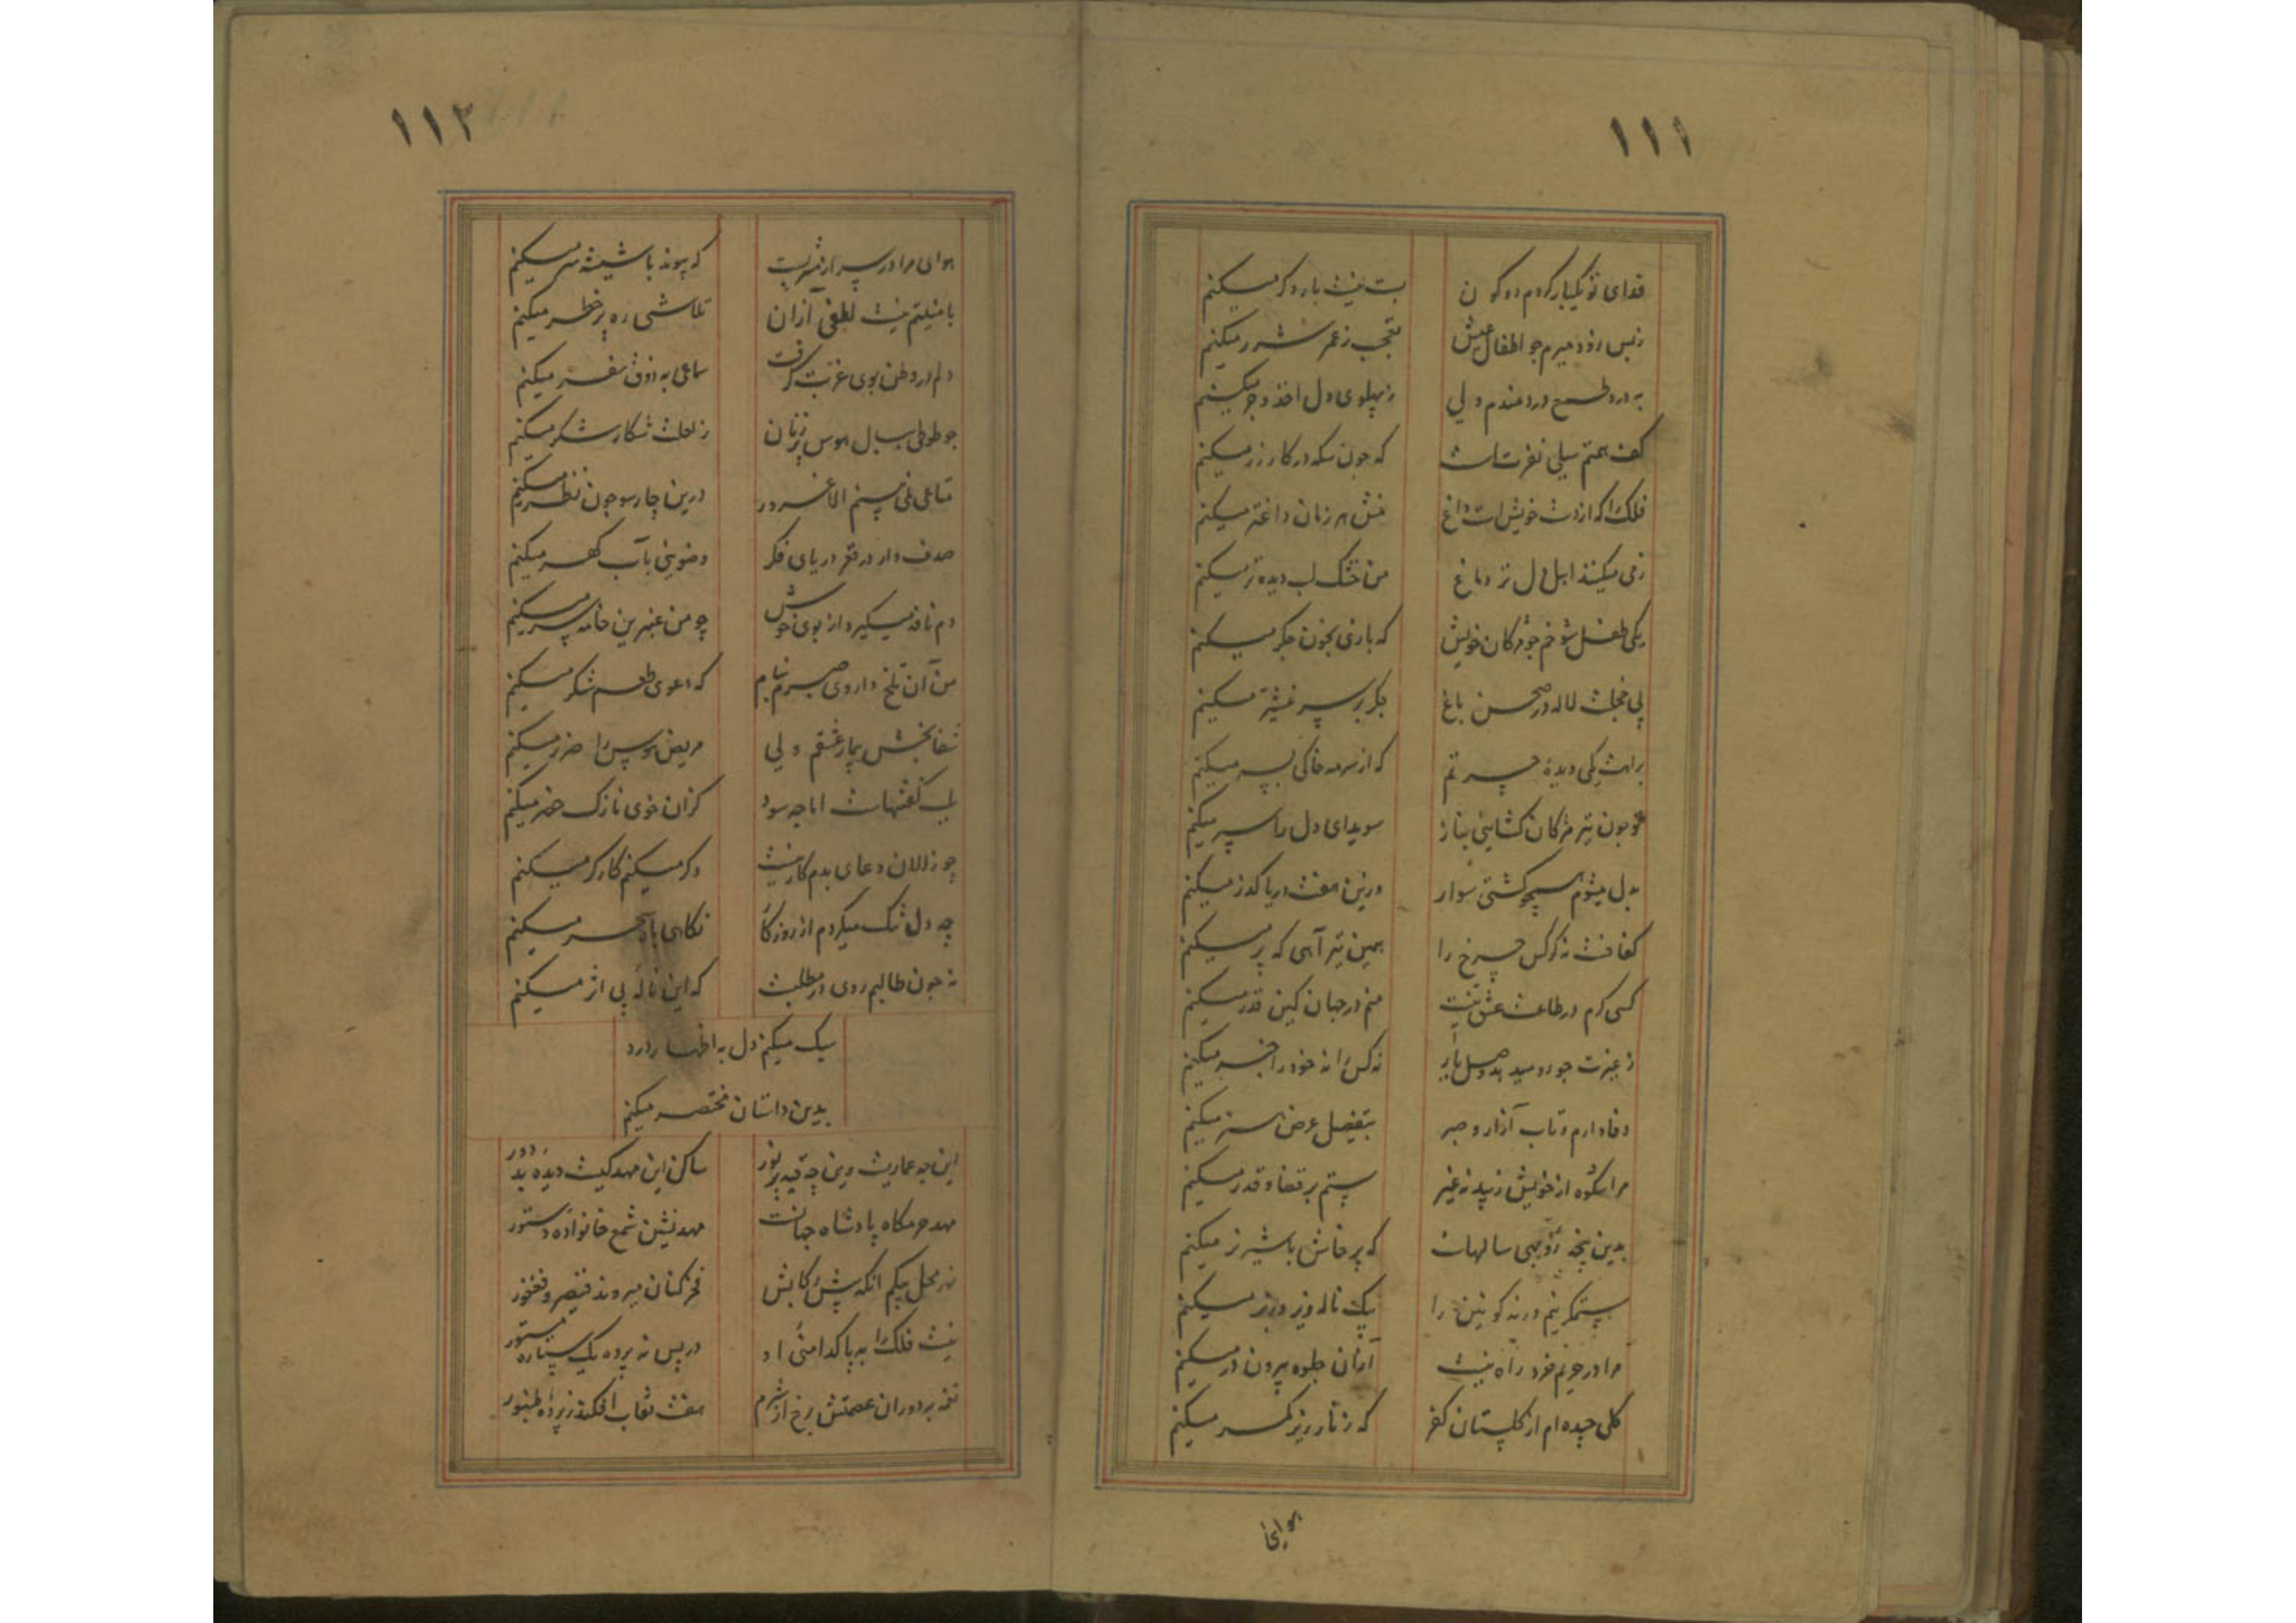 ۱۱۱
فدای تو یکبار کردم دو کون بست نیست بار دگر میکنم
ز بس زود میرم چو اطفال عیش تعجب ز عمر شرر میکنم
به درد طمع دردمندم ولی ز پهلوی دل اخذ و جر میکنم
کف همتم سیلی نفرتست که چون سکه در کار زر میکنم
فلک را که از دست خویش است داغ منش هر زمان داغتر میکنم
ز می میکنند اهل دل تر دماغ من خشک لب دیده تر میکنم
یکی طفل شوخم چو مژکان خویش که بازی بخون جکر میکنم
پی خجلت لاله در صحن باغ جکر بر سر نیشتر میکنم
براهت یکی دیده حسرتم که از سرمه خاکی بسر میکنم
تو چون تیر مژکان کشایی بناز سویدای دل را سپر میکنم
بدل میشوم همچو کشتی سوار درین هفت دریا کذر میکنم
کفافست نه کرکس چرخ را همین تیر آهی که پر میکنم
کسی کرم در طاعت عشق نیست منم در جهان کین قدر میکنم
ز غیرت چو رو میدهد وصل یار نه کس را نه خود را خبر میکنم
وفا دارم و تاب آزار و صبر بتفصیل عرض هنر میکنم
مرا شکوه از خویش زیبد نه غیر ستم بر قضا و قدر میکنم
بدین پنجه روبهی سالهاست که پرخاش با شیر نر میکنم
ستمکر نیم ورنه کونین را بیک ناله زیر و زبر میکنم
مرا در حریم خرد راه نیست ازان جلوه بیرون در میکنم
کلی چیده ام از کلستان کفر که زنار زیب کمر میکنم
هوای
۱۱۲
هوای مرا در سر از نیشتریست که پیوند با نیشتر میکنم
بامنیتم نیست لطفی ازان تلاش ره پر خطر میکنم
دلم در وطن بوی غربت کرفت سماعی به ذوق سفر میکنم
چو طوطی ببال هوس پرزنان ز لعلت شکار شکر میکنم
متاعی نمی بینم الا غرور درین چارسو چون نظر میکنم
صدف وار در قعر دریای فکر وضویی بآب کهر میکنم
دم نافه میکیرد از بوی خوش چو من عنبرین خامه سر میکنم
من آن تلخ داروی صبرم بنام که دعوی طعم شکر میکنم
شفا بخش بیمار عشقم ولی مریض هوس را ضرر میکنم
بلب کفتنیهاست اما چه سود کزان خوی نازک حذر میکنم
چو زالان دعای بدم کار نیست وکر میکنم کارکر میکنم
چه دل تنک میکردم از روزکار نکاهی به آه سحر میکنم
نه چون طالبم روی در مطلبست که این ناله بی اثر میکنم
سبک میکنم دل به اظهار درد
بدین داستان مختصر میکنم
این چه عماریست وین چه قبه پر نور ساکن این مهد کیست دیده بد دور
مهد حرمکاه پادشاه جهانست مهد نشین شمع خانواده دستور
نور محل بیکم آنکه پیش رکابش فخر کنان میروند قیصر و فغفور
نیست فلک را به پاکدامنی او در پس نه پرده یک ستاره مستور
نغمه بدوران عصمتش برخ از شرم هفت نقاب افکند ز پرده طنبور